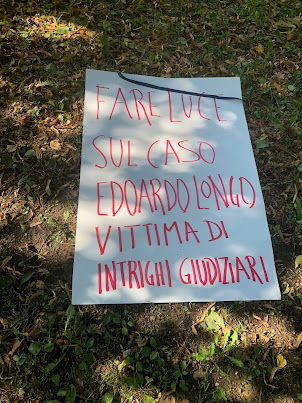 FARE LUCE
SUL CASO
EDOARDO LONGO
VITTIMA DI
INTRIGHI GIUDIZIARI